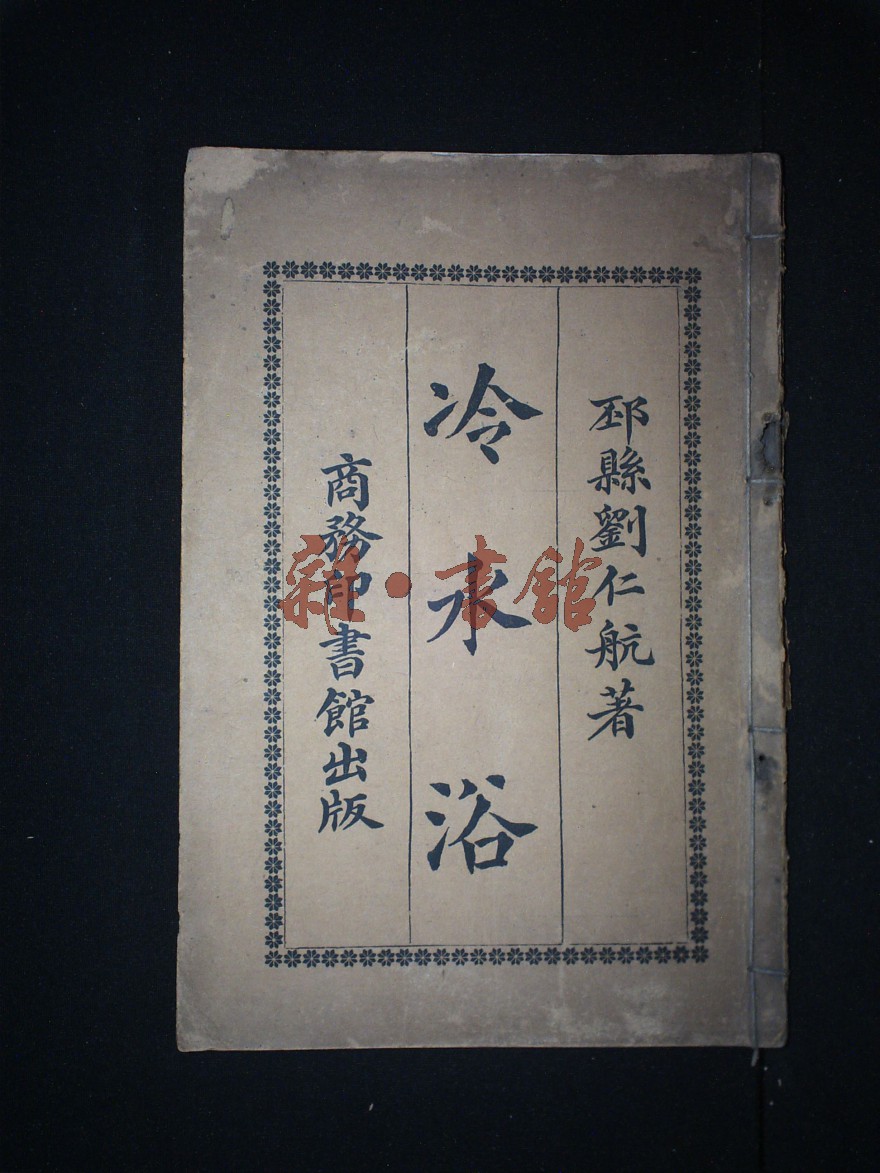 邳縣劉仁航著
冷水浴
商務印書館出版
雜·書館